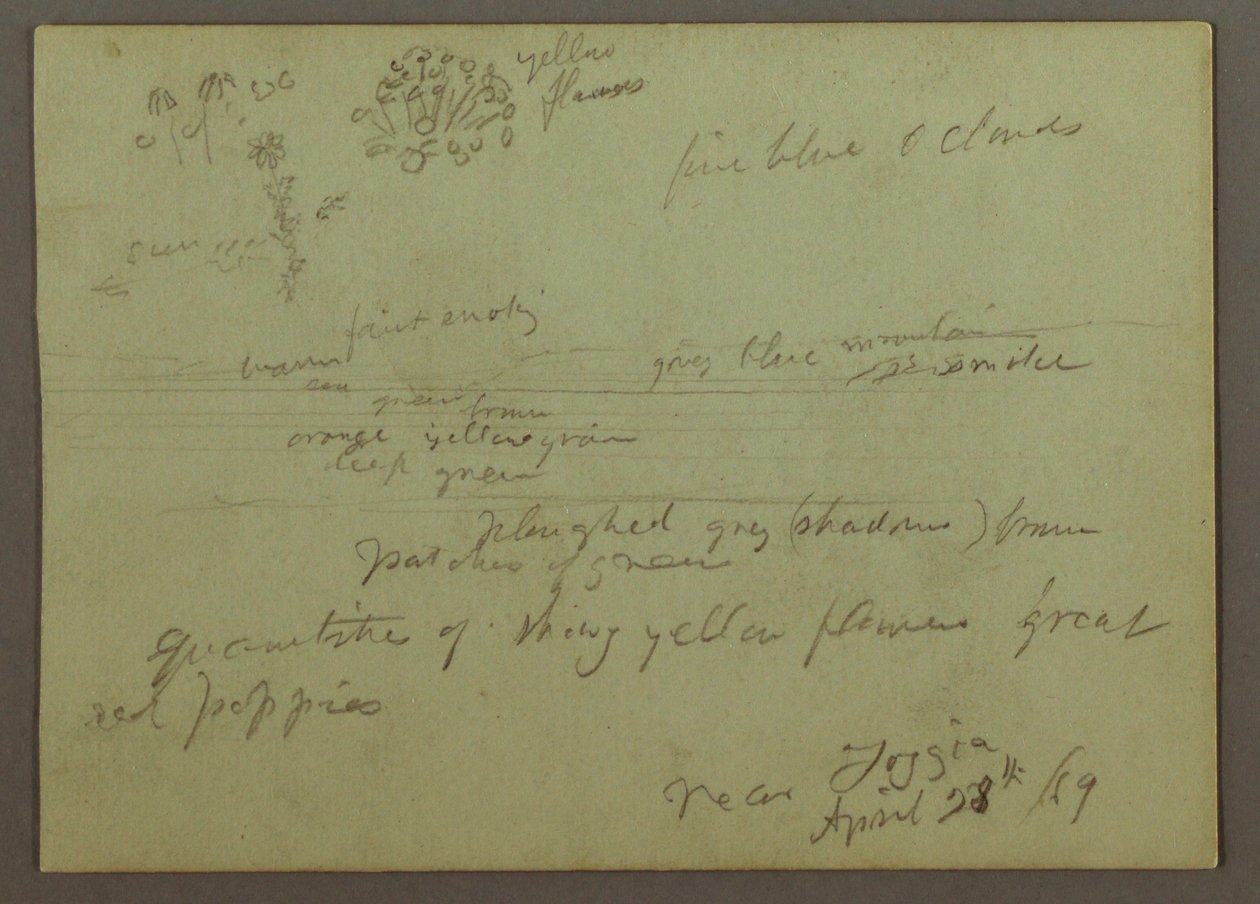 yellow
flowers
fine blue & clouds
sun
faint smoky
warm
grey blue mountain
25 miles
sea
green
brown
orange yellow green
deep green
ploughed grey (shadows) brown
patches of green
quantities of shiny yellow flowers great
red poppies
near Foggia
April 28th /89